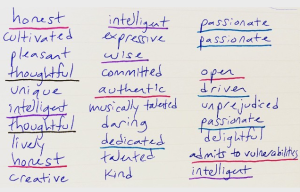 honest
cultivated
pleasant
thoughtful
unique
intelligent
thoughtful
lively
honest
creative
intelligent
expressive
wise
committed
authentic
musically talented
daring
dedicated
talented
kind
passionate
passionate
open
driven
unprejudiced
passionate
delightful
admits to vulnerabilities
intelligent